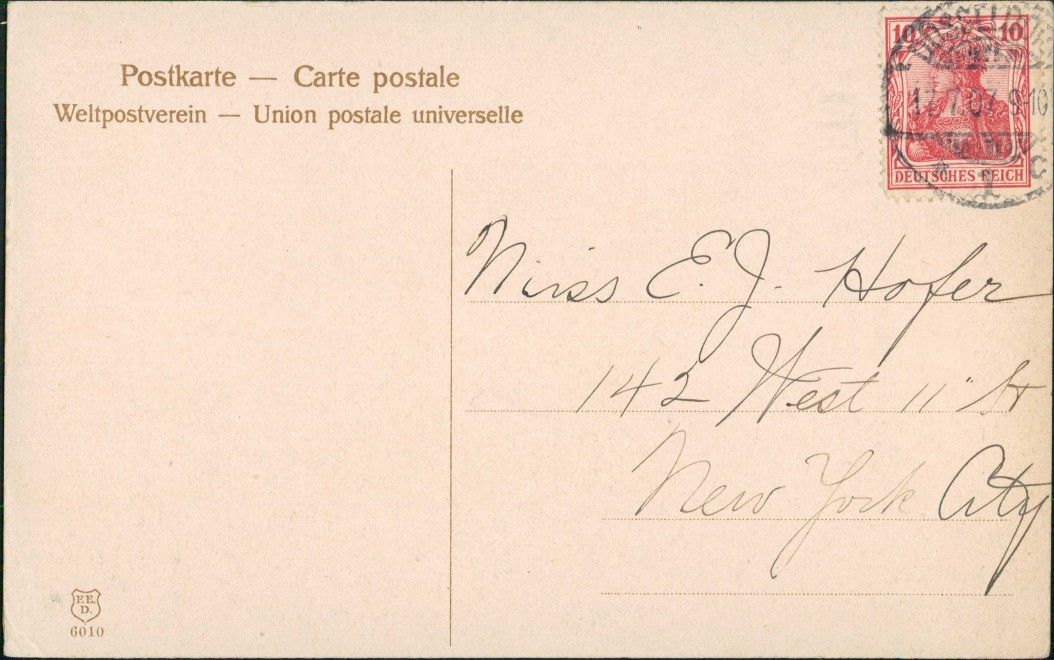 Postkarte — Carte postale
Weltpostverein — Union postale universelle
10 10
DEUTSCHES REICH
Miss E. J. Hofer
142 West 11" St
New York City
F.E.
D.
6010